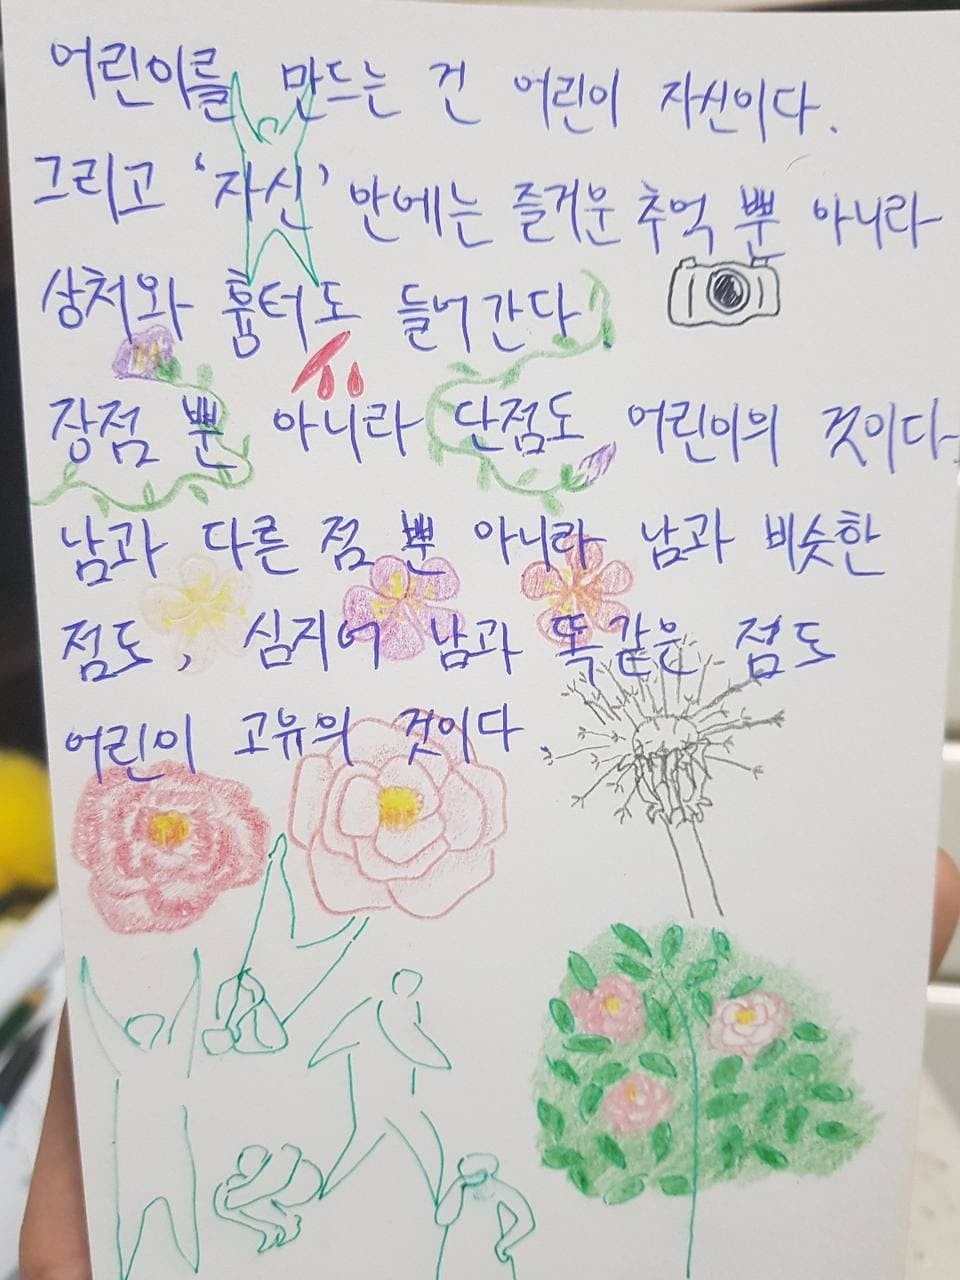 어린이를 만드는 건 어린이 자신이다.
그리고 '자신' 안에는 즐거운 추억 뿐 아니라
상처와 흉터도 들어간다
장점 뿐 아니라 단점도 어린이의 것이다.
남과 다른 점 뿐 아니라 남과 비슷한
점도, 심지어 남과 똑같은 점도
어린이 고유의 것이다